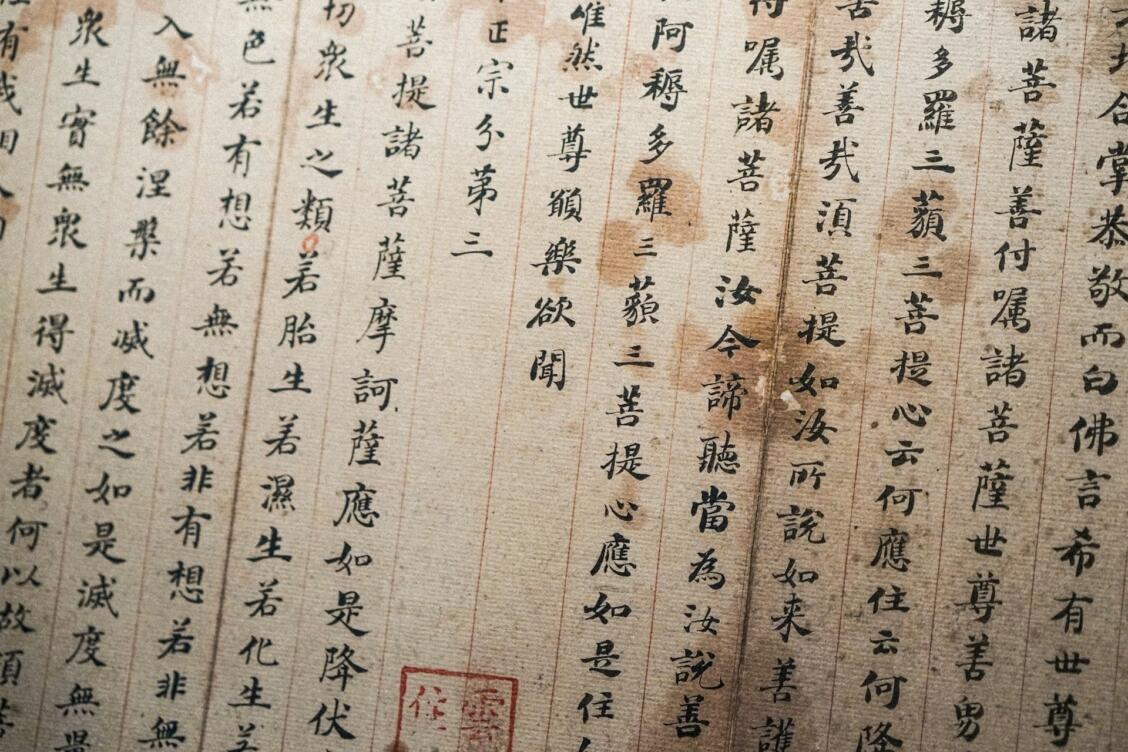 合掌恭敬而白佛言希有世尊
諸菩薩善付囑諸菩薩世尊善男
耨多羅三藐三菩提心云何應住云何降
善哉善哉湏菩提如汝所說如来善護
囑諸菩薩汝今諦聽當為汝說善
阿耨多羅三藐三菩提心應如是住
唯然世尊願樂欲聞
正宗分第三
菩提諸菩薩摩訶薩應如是降伏
切衆生之類若胎生若濕生若化生若
無色若有想若無想若非有想若非無
入無餘涅槃而滅度之如是滅度無量
衆生實無衆生得滅度者何以故湏菩
有我相人相
雲
住